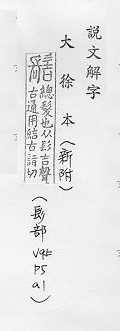 說文解字
大徐本(新附)
髻 總髮也从髟吉聲
古通用結古詣切
(髟部 V9上
P5
a1)